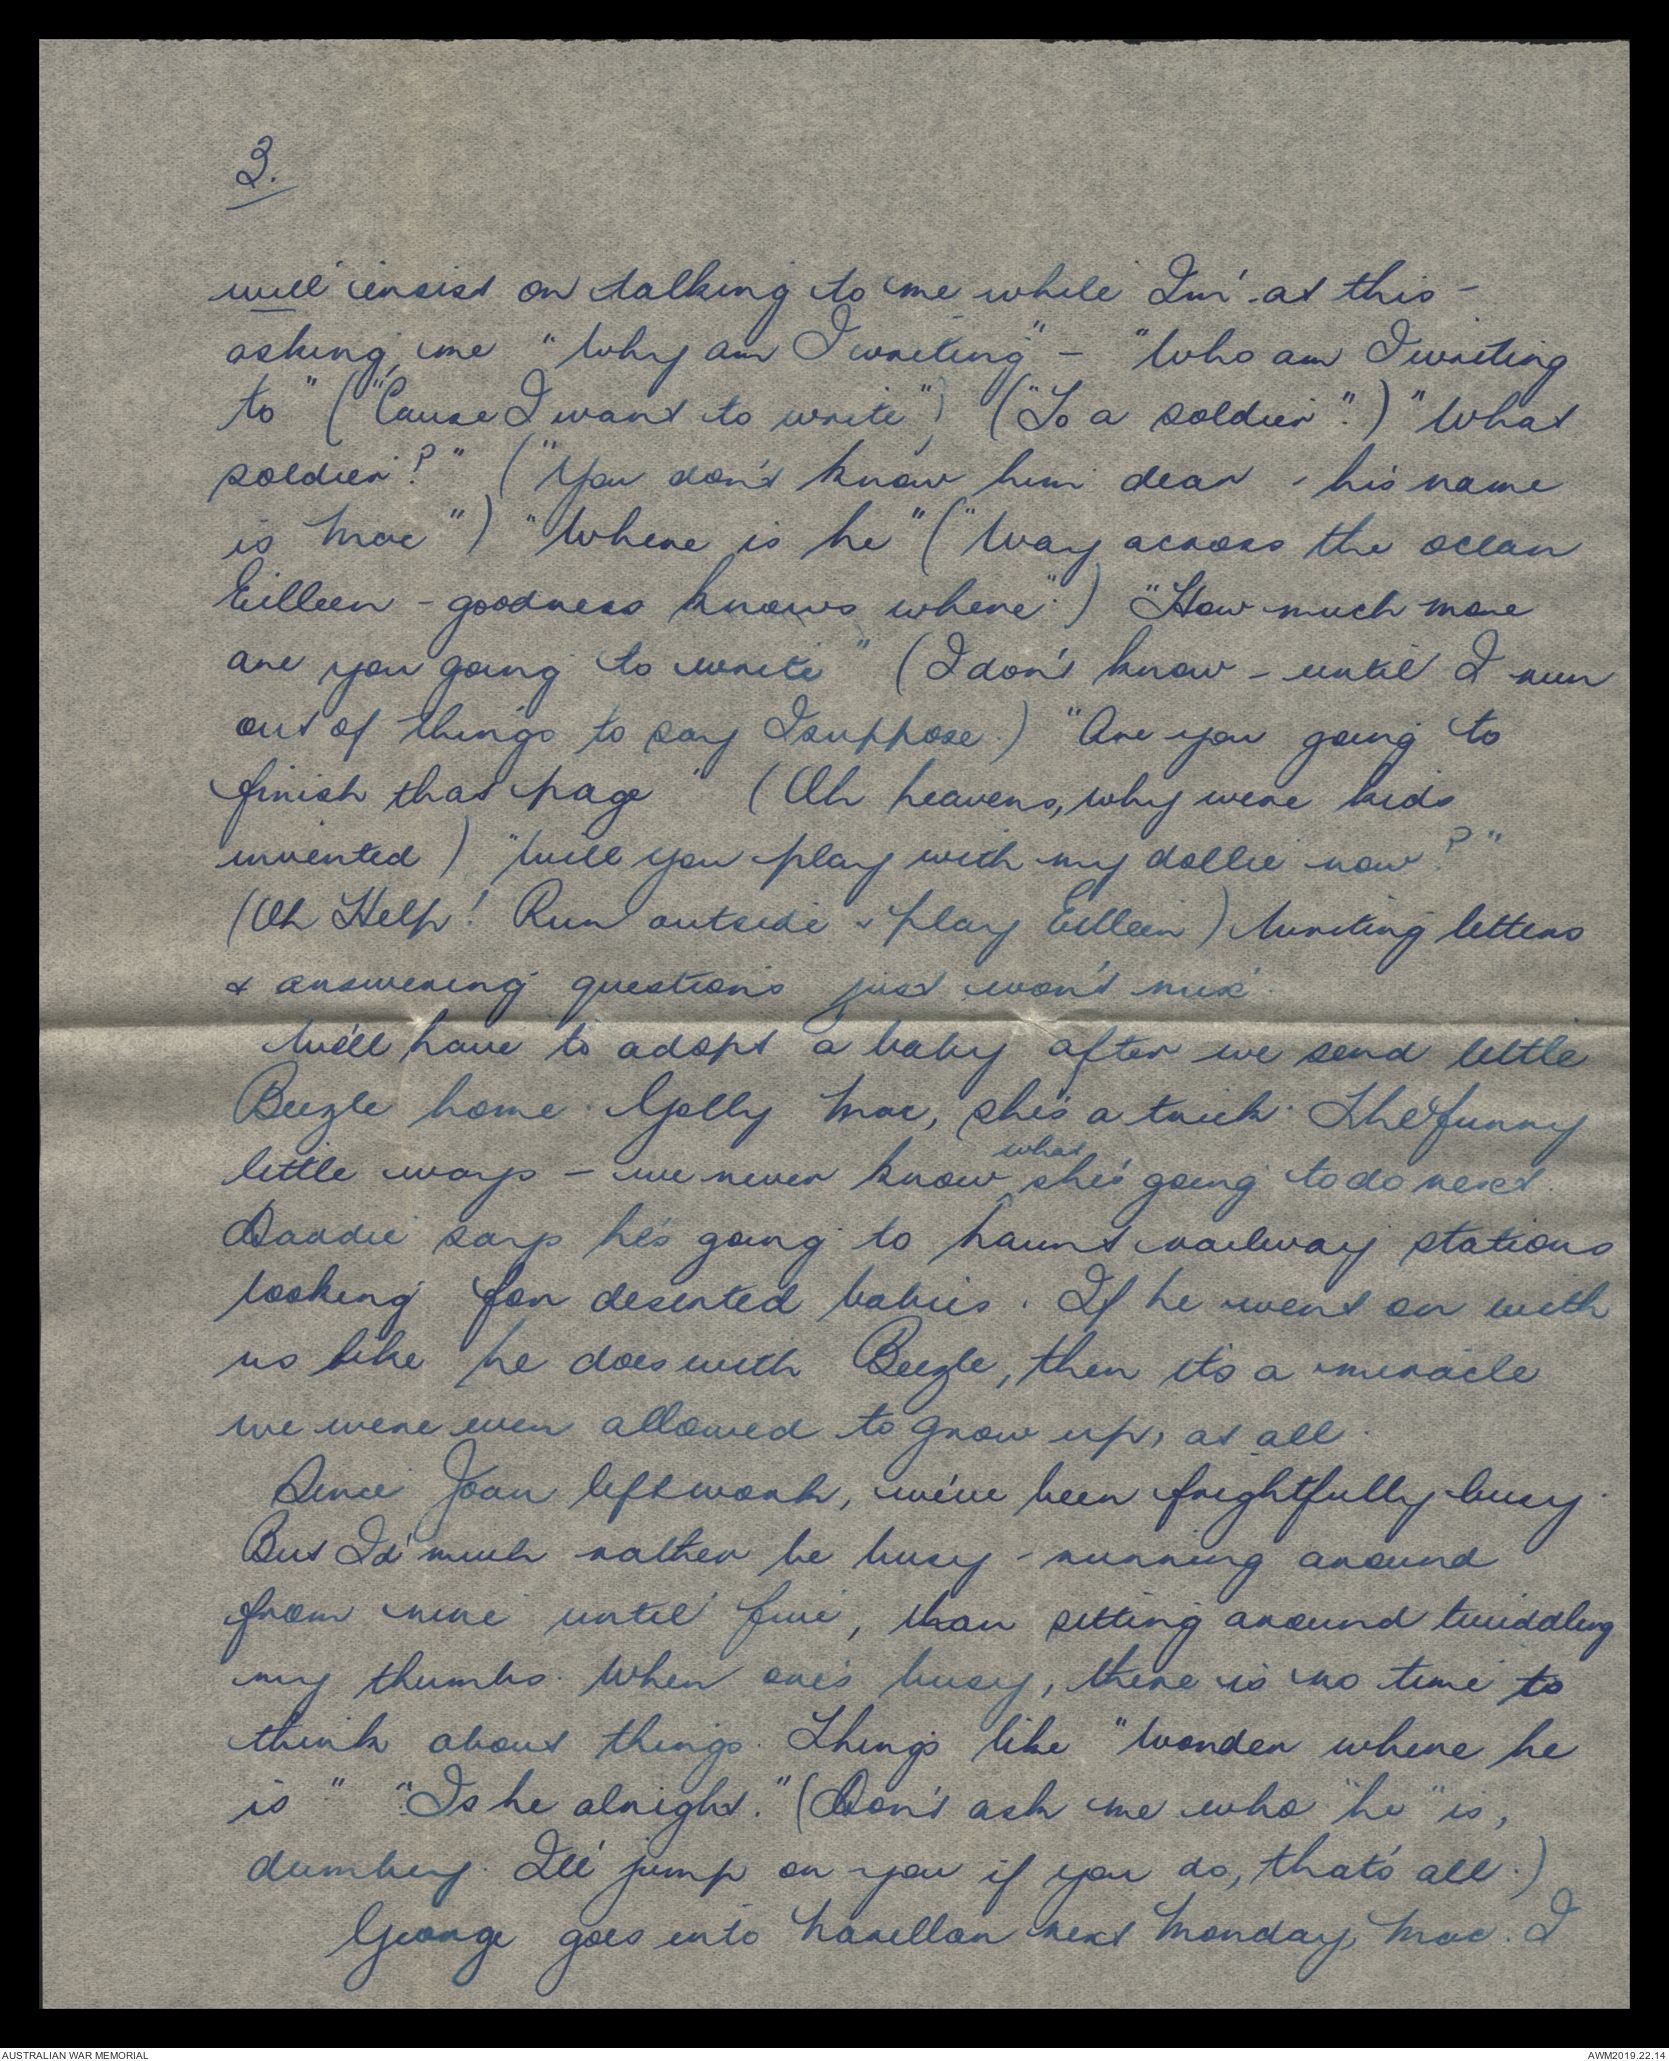 3.
will insist on talking to me while I'm at this -
asking me "Why am I writing" - "Who am I writing
to" ("Cause I want to write") ("To a soldier".) "What
soldier?" ("You don't know him dear - his name
is Mac") "Where is he" ("Way across the ocean
Eilleen - goodness knows where".) "How much more
are you going to write" (I don't know - until I run
out of things to say I suppose.) "Are you going to
finish that page" (Oh heavens, why were kids
invented) "Will you play with my dollie now?"
(Oh Help! Run outside & play Eilleen) Writing letters
& answering questions just won't mix.
We'll have to adopt a baby after we send little
Beezle home. Golly Mac, she's a trick. The funny
little ways - we never know what she's going to do next.
Daddie says he's going to haunt railway stations
looking for deserted babies. If he went on with
us like he does with Beezle, then it's a miracle
we were ever allowed to grow up, at all.
Since Joan left work, we've been frightfully busy.
But I'd much rather be busy - running around
from nine until five, than sitting around twiddling
my thumbs. When one's busy, there is no time to
think about things. Things like "Wonder where he
is" "Is he alright." (Don't ask me who "he" is,
dumbey. I'll jump on you if you do, that's all.)
George goes into Narellan next Monday, Mac. I
AUSTRALIAN WAR MEMORIAL
AWM2019.22.14